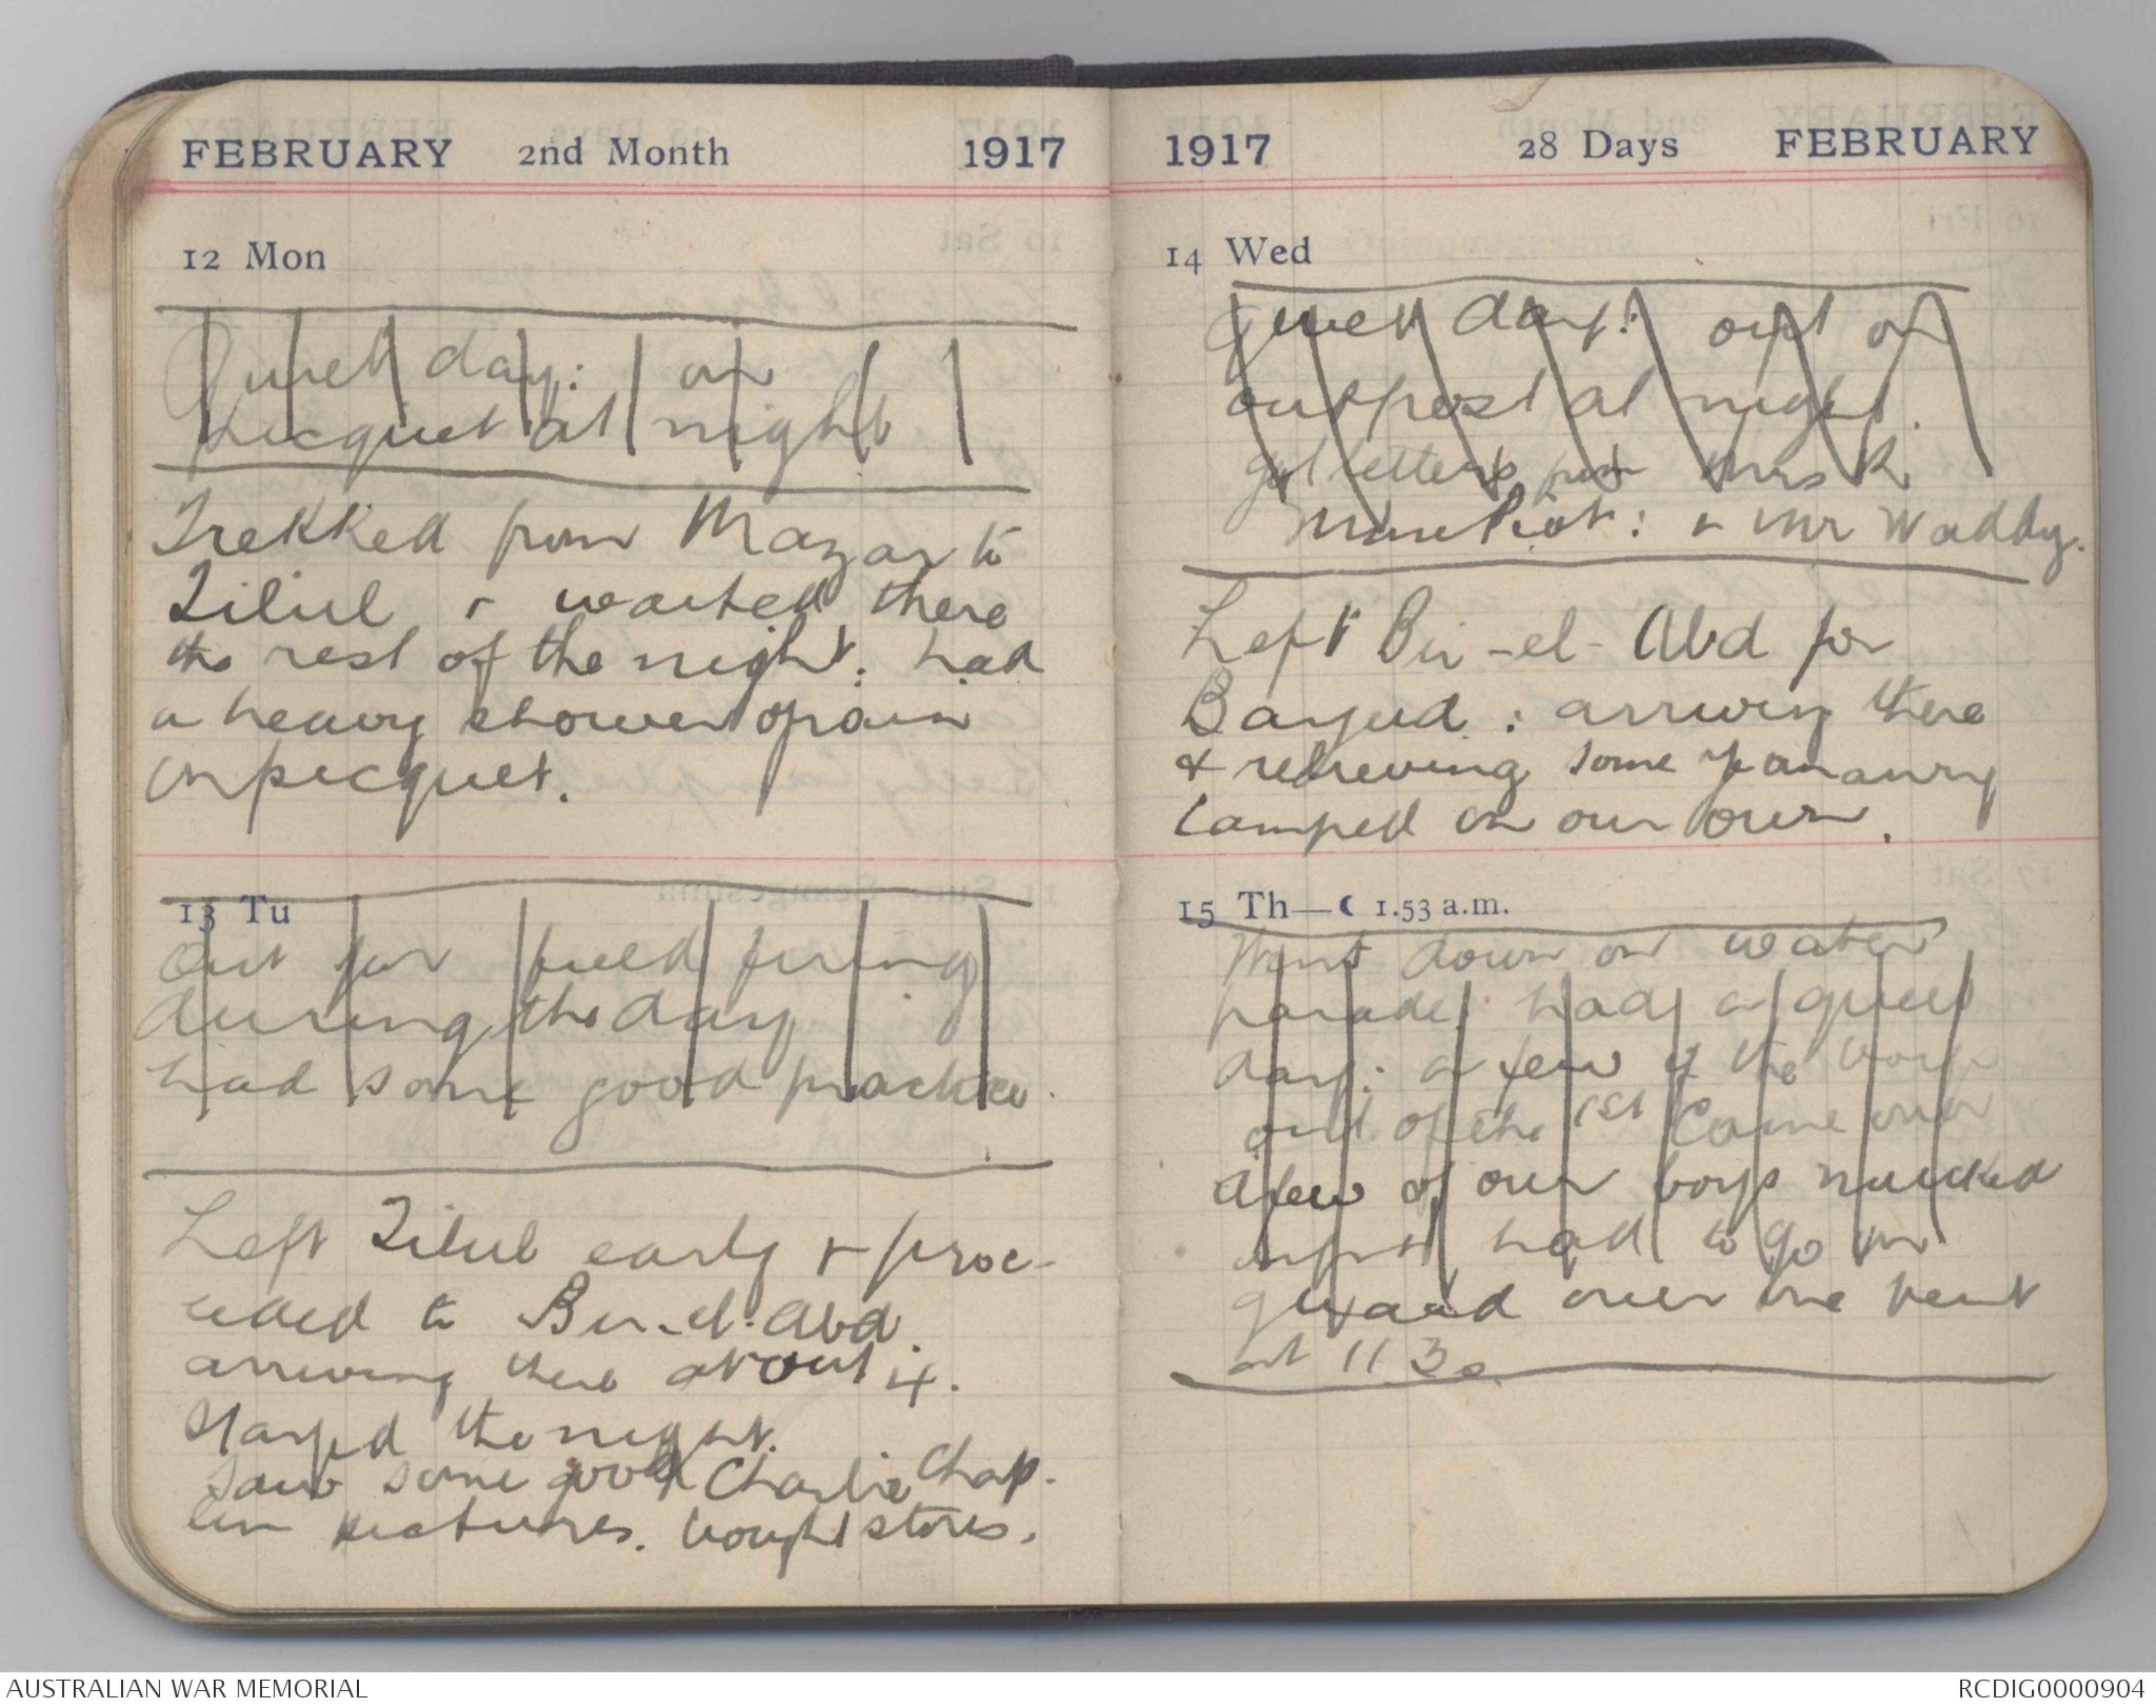 FEBRUARY 2nd Month 1917
12 Mon
Quiet day: on
picquet at night
Trekked from Mazar to
Tilul & waited there
the rest of the night: had
a heavy shower of rain
on picquet.
13 Tu
Out for field firing
during the day
had some good practice.
Left Tilul early & proc-
eeded to Bir-el-Abd.
arriving there about 4.
Stayed the night.
Saw some good Charlie Chap-
lin pictures. bought stores.
1917 28 Days FEBRUARY
14 Wed
Quiet day: out on
outpost at night.
got letters from Mrs R.
: & Mr Waddy.
Left Bir-el-Abd for
Bayud: arriving there
& relieving some yeomanry
camped on our own.
15 Th—☾ 1.53 a.m.
Went down on water
parade: had a quiet
day: a few of the boys
out of the 1st came over
a few of our boys
had to go on
guard over one tent
at 11 30
AUSTRALIAN WAR MEMORIAL
RCDIG0000904